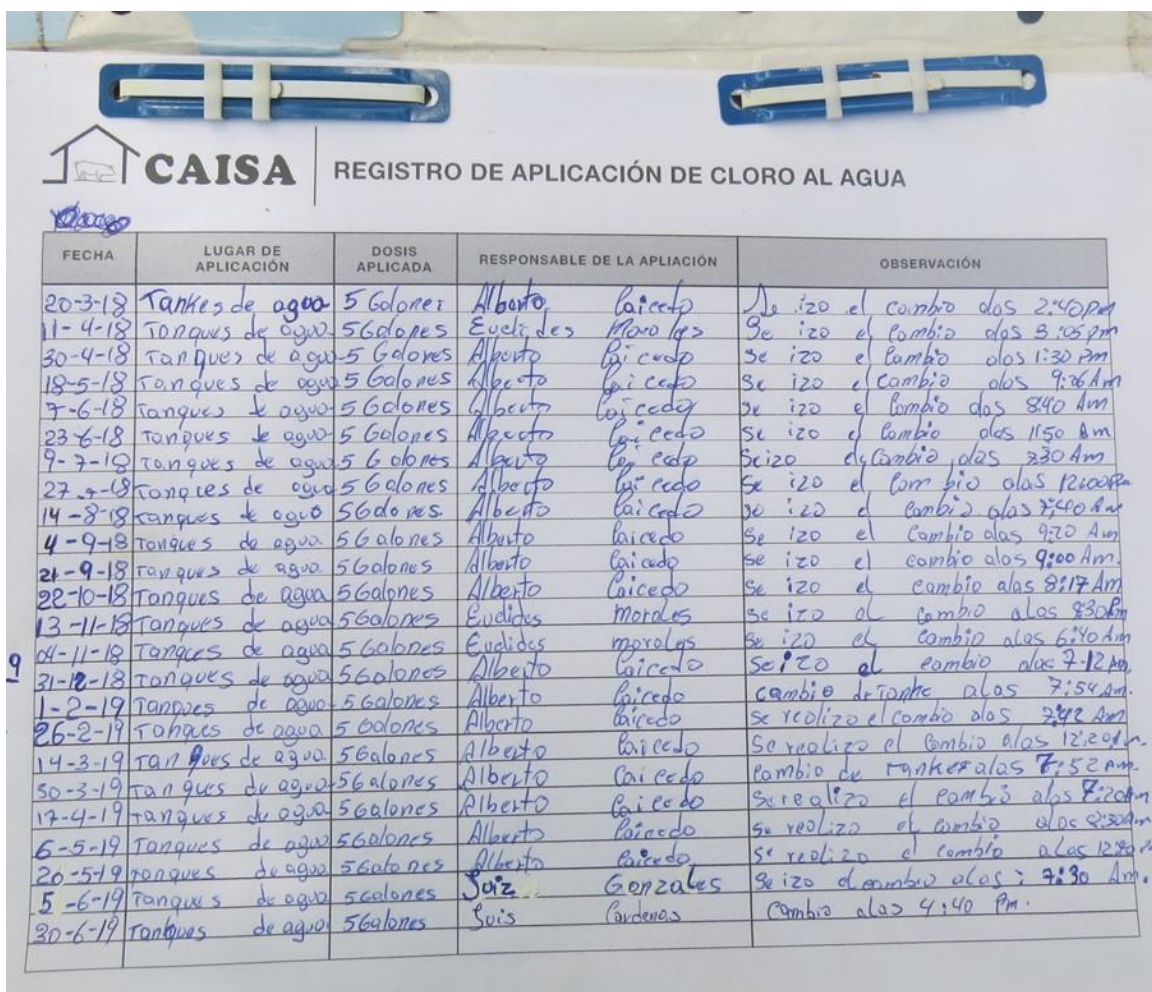 CAISA REGISTRO DE APLICACIÓN DE CLORO AL AGUA
FECHA LUGAR DE APLICACIÓN DOSIS APLICADA RESPONSABLE DE LA APLIACIÓN OBSERVACIÓN
20-3-18 Tankes de agua 5 Galones Alberto Caicedo Se izo el cambio alas 2:40 pm
11-4-18 Tanques de agua 5 Galones Euclides Morales Se izo el Cambio alas 3:05 pm
30-4-18 Tanques de agua 5 Galones Alberto Caicedo Se izo el Cambio alas 1:30 pm
18-5-18 Tanques de agua 5 Galones Alberto Caicedo Se izo el Cambio alas 9:26 Am
7-6-18 Tanques de agua 5 Galones Alberto Caicedo Se izo el Cambio alas 8:40 Am
23-6-18 Tanques de agua 5 Galones Alberto Caicedo Se izo el Cambio alas 11:50 Am
9-7-18 Tanques de agua 5 Galones Alberto Caicedo Se izo el Cambio alas Am
27-7-18 Tanques de agua 5 Galones Alberto Caicedo Se izo el Cambio alas 12:00 Pm
14-8-18 Tanques de agua 5 Galones Alberto Caicedo Se izo el Cambio alas 7:40 Am
4-9-18 Tanques de agua 5 Galones Alberto Caicedo Se izo el Cambio alas 9:20 Am
21-9-18 Tanques de agua 5 Galones Alberto Caicedo Se izo el cambio alas 9:00 Am.
22-10-18 Tanques de agua 5 Galones Alberto Caicedo Se izo el Cambio alas 8:17 Am
13-11-18 Tanques de agua 5 Galones Euclides morales Se izo el Cambio alas 8:30
04-11-18 Tanques de agua 5 Galones Euclides morales Se izo el Cambio alas 6:40 Am
9
31-12-18 Tanques de agua 5 Galones Alberto Caicedo Se izo el cambio alas 7-12 Am
1-2-19 Tanques de agua 5 Galones Alberto Caicedo cambio de Tanke alas 7:54 Am.
26-2-19 Tanques de agua 5 Galones Alberto Caicedo Se realizo el Cambio alas 7:42 Am
14-3-19 Tanques de agua 5 Galones Alberto Caicedo Se realizo el Cambio alas 12:20
30-3-19 Tanques de agua 5 Galones Alberto Caicedo Cambio de Tankes alas 7:52 Am.
17-4-19 Tanques de agua 5 Galones Alberto Caicedo Se realizo el Cambio alas 7:20 Am
6-5-19 Tanques de agua 5 Galones Alberto Caicedo Se realizo el Cambio alas 8:30 Am
20-5-19 Tanques de agua 5 Galones Alberto Caicedo Se realizo el Cambio alas
5-6-19 Tanques de agua 5 Galones Luiz Gonzales Se izo el cambio alas : 7:30 Am.
30-6-19 Tanques de agua 5 Galones Luis Cardenas Cambio alas 4:40 Pm.